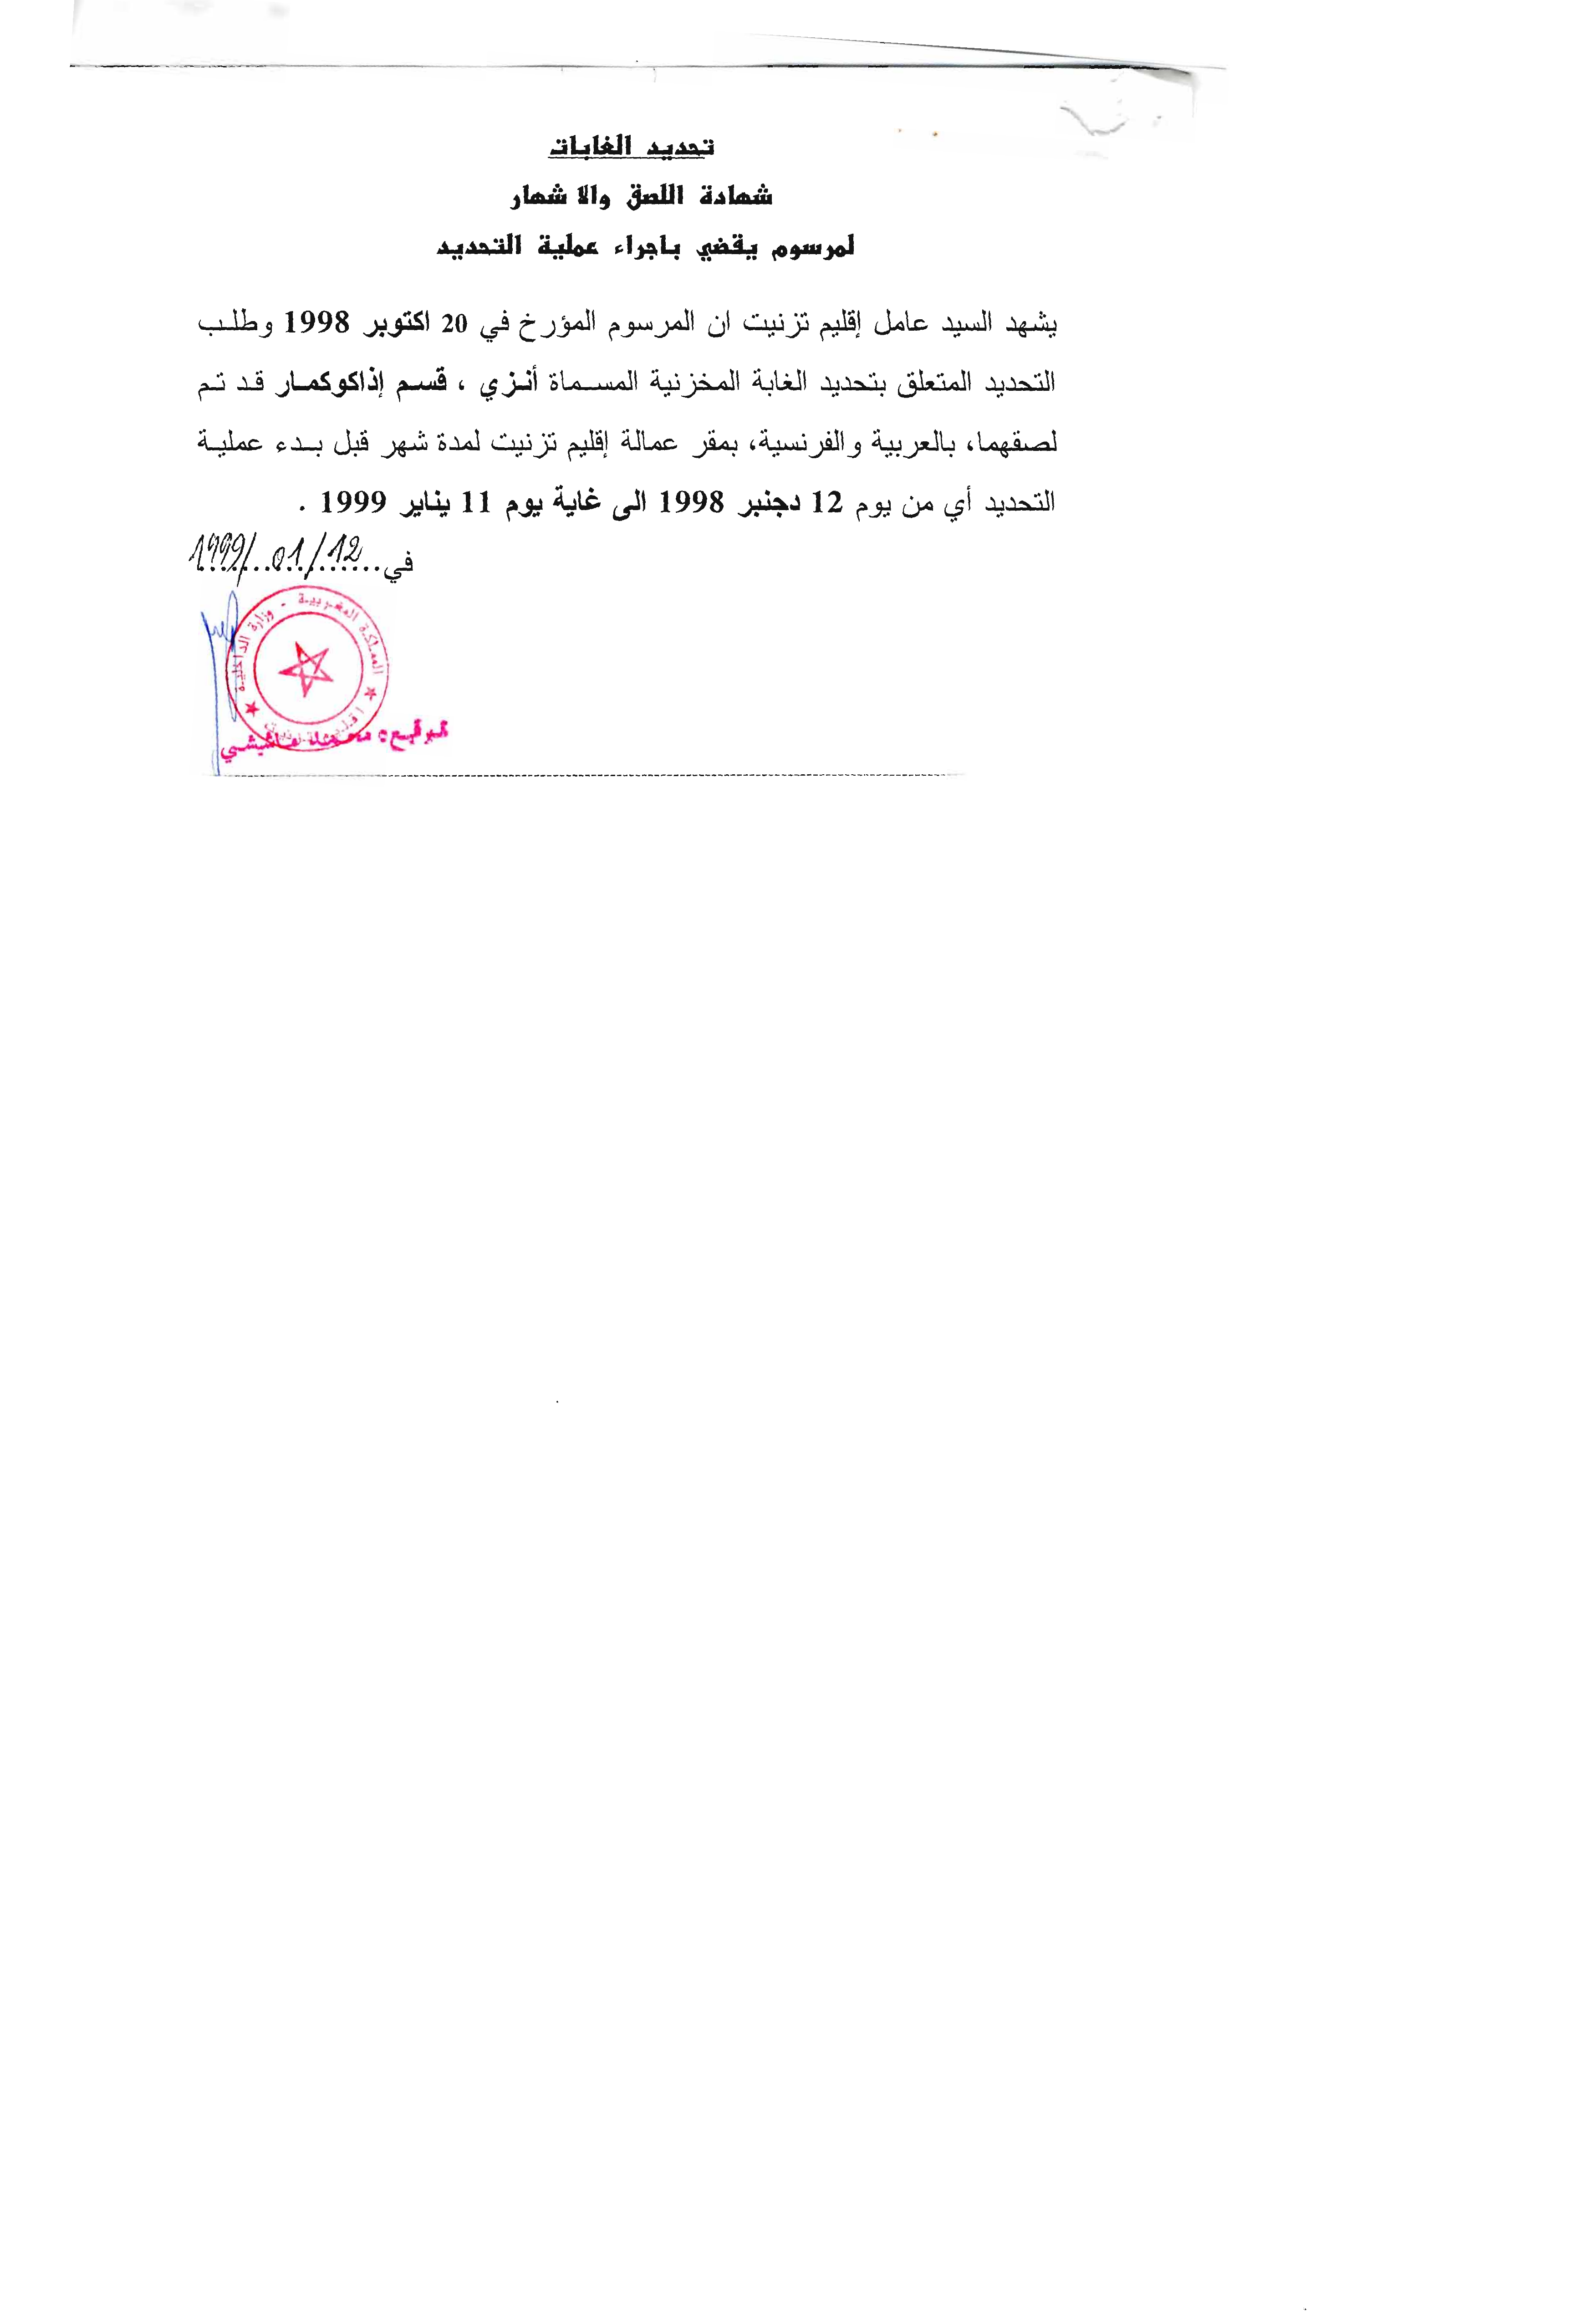 تحديد الغابات
شهادة اللصق والاشهار
لمرسوم يقضي باجراء عملية التحديد
يشهد السيد عامل إقليم تزنيت ان المرسوم المؤرخ في 20 اكتوبر 1998 وطلب
التحديد المتعلق بتحديد الغابة المخزنية المسماة أنزي ، قسم إذاكوكمار قد تم
لصقهما، بالعربية والفرنسية، بمقر عمالة إقليم تزنيت لمدة شهر قبل بدء عملية
التحديد أي من يوم 12 دجنبر 1998 الى غاية يوم 11 يناير 1999 .
في 12/01/1999
المملكة المغربية - وزارة الداخلية